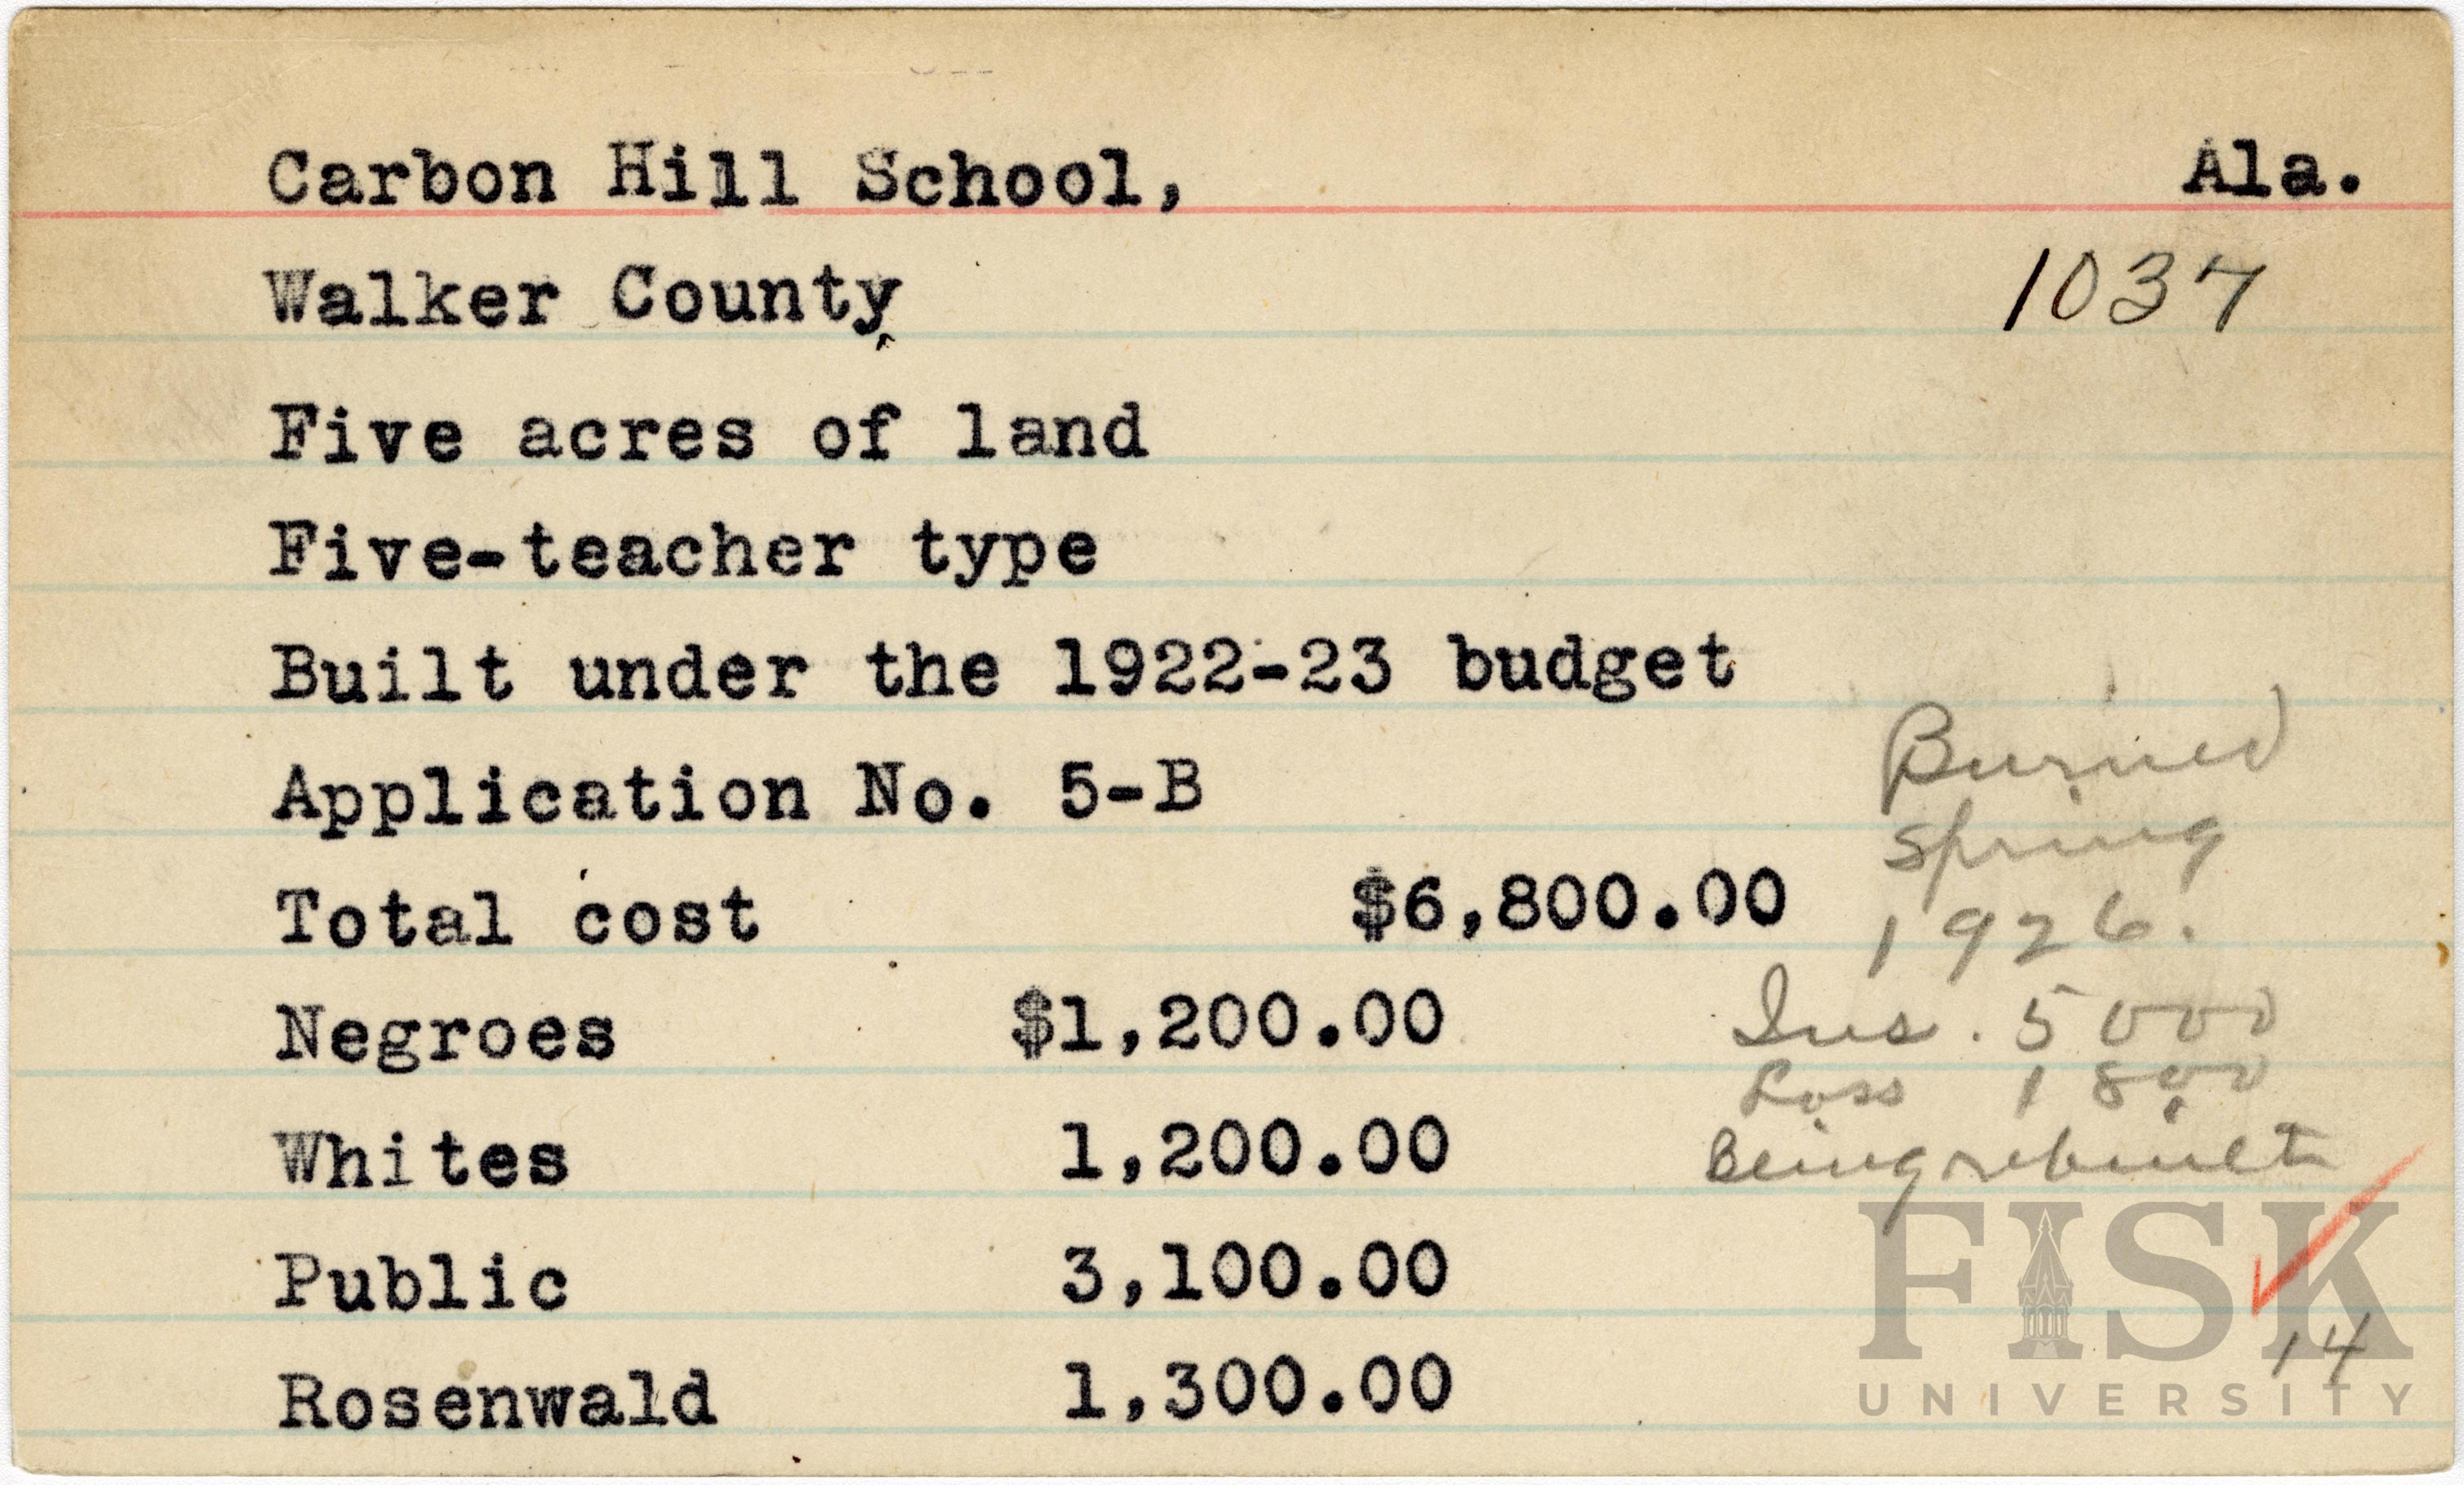 Carbon Hill School, Ala.
Walker County 1037
Five acres of land
Five-teacher type
Built under the 1922-23 budget
Application No. 5-B
Total cost $6,800.00
Negroes $1,200.00
Whites 1,200.00
Public 3,100.00
Rosenwald 1,300.00
Burned
spring
1926.
Ins. 5000
Loss 1800
Being rebuilt
14
FISK
UNIVERSITY